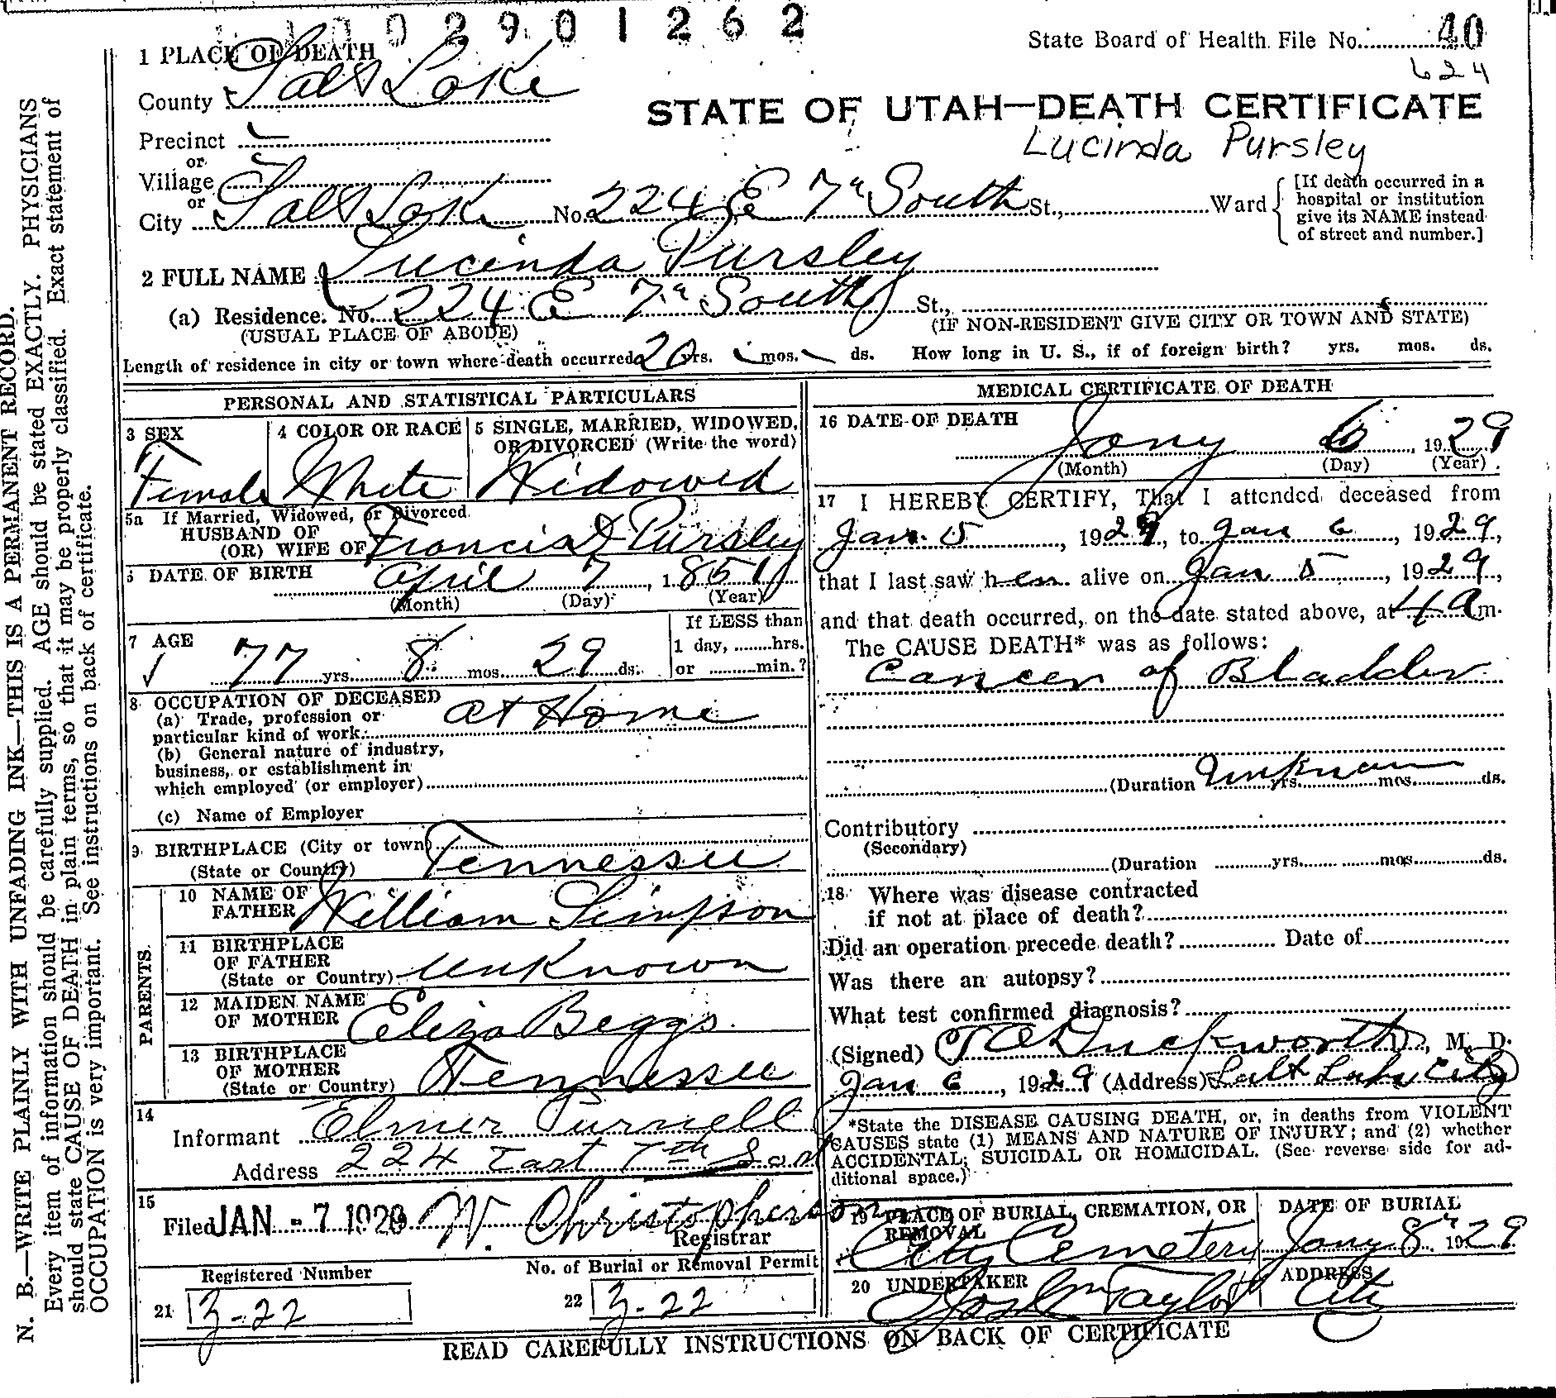 0 2 9 0 1 2 6 2
State Board of Health File No. 40
624
1 PLACE OF DEATH
County Salt Lake
STATE OF UTAH—DEATH CERTIFICATE
Lucinda Pursley
Precinct
or
Village
or
City Salt Lake No. 224 E 7th South St., Ward
[If death occurred in a
hospital or institution
give its NAME instead
of street and number.]
2 FULL NAME Lucinda Pursley
(a) Residence. No. 224 E 7th South St.,
(USUAL PLACE OF ABODE) (IF NON-RESIDENT GIVE CITY OR TOWN AND STATE)
Length of residence in city or town where death occurred 20 yrs. mos. ds. How long in U. S., if of foreign birth? yrs. mos. ds.
PERSONAL AND STATISTICAL PARTICULARS
3 SEX
Female
4 COLOR OR RACE
White
5 SINGLE, MARRIED, WIDOWED,
OR DIVORCED (Write the word)
Widowed
5a If Married, Widowed, or Divorced
HUSBAND OF
(OR) WIFE OF Francis Pursley
6 DATE OF BIRTH April 7, 1851
(Month) (Day) (Year)
7 AGE
77 yrs. 8 mos. 29 ds.
If LESS than
1 day, ........hrs.
or ........min.?
8 OCCUPATION OF DECEASED
(a) Trade, profession or
particular kind of work. at Home
(b) General nature of industry,
business, or establishment in
which employed (or employer)
(c) Name of Employer
9 BIRTHPLACE (City or town)
(State or Country) Tennessee
PARENTS
10 NAME OF
FATHER William Simpson
11 BIRTHPLACE
OF FATHER
(State or Country) Unknown
12 MAIDEN NAME
OF MOTHER Eliza Beggs
13 BIRTHPLACE
OF MOTHER
(State or Country) Tennessee
14
Informant Elmer Purnell
Address 224 East 7th Sout
15
Filed JAN -7 1929 W. Christopherson
Registrar
Registered Number
21 3-22
No. of Burial or Removal Permit
22 3-22
MEDICAL CERTIFICATE OF DEATH
16 DATE OF DEATH
Jany 6, 1929
(Month) (Day) (Year)
17 I HEREBY CERTIFY, That I attended deceased from
Jan. 5, 1929, to Jan 6, 1929,
that I last saw her alive on Jan 5, 1929,
and that death occurred, on the date stated above, at 4 a m.
The CAUSE DEATH* was as follows:
Cancer of Bladder
(Duration Unknown yrs. mos. ds.
Contributory
(Secondary)
(Duration yrs. mos. ds.
18 Where was disease contracted
if not at place of death?
Did an operation precede death? Date of
Was there an autopsy?
What test confirmed diagnosis?
(Signed) Duckworth, M. D.
Jan 6, 1929 (Address) Salt Lake City
*State the DISEASE CAUSING DEATH, or, in deaths from VIOLENT
CAUSES state (1) MEANS AND NATURE OF INJURY; and (2) whether
ACCIDENTAL, SUICIDAL OR HOMICIDAL. (See reverse side for ad-
ditional space.)
19 PLACE OF BURIAL, CREMATION, OR
REMOVAL
City Cemetery
DATE OF BURIAL
Jany 8th 1929
20 UNDERTAKER
Jos Wm Taylor
ADDRESS
City
READ CAREFULLY INSTRUCTIONS ON BACK OF CERTIFICATE
N. B.—WRITE PLAINLY WITH UNFADING INK—THIS IS A PERMANENT RECORD.
Every item of information should be carefully supplied. AGE should be stated EXACTLY. PHYSICIANS
should state CAUSE OF DEATH in plain terms, so that it may be properly classified. Exact statement of
OCCUPATION is very important. See instructions on back of certificate.